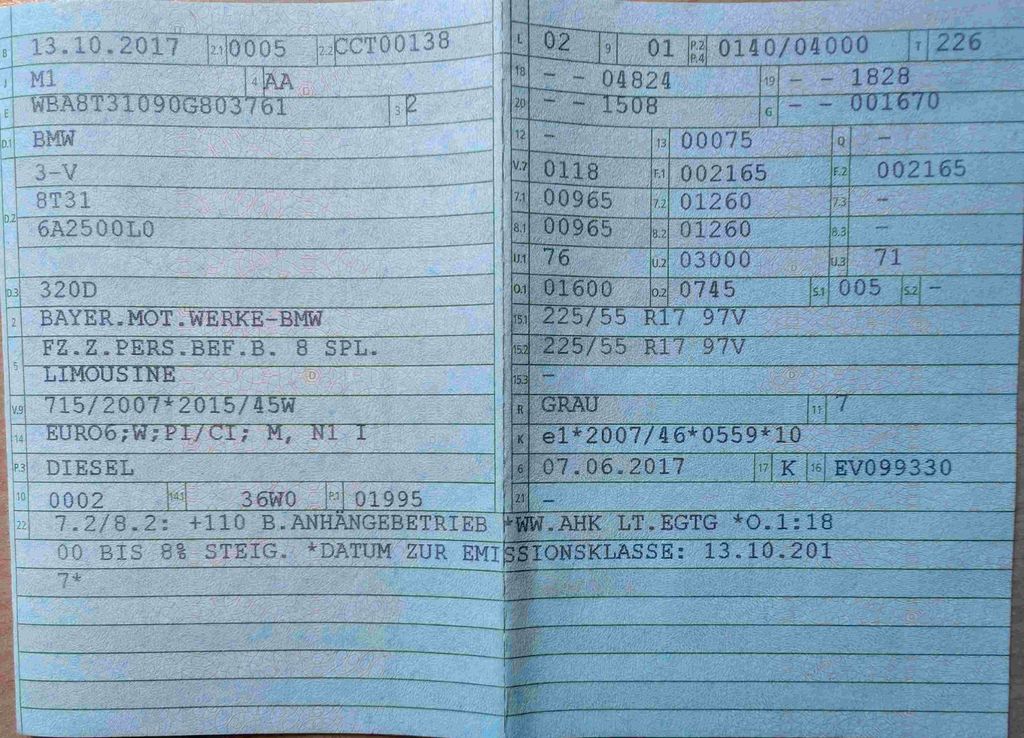 B 13.10.2017 2.1 0005 2.2 CCT00138
J M1 4 AA
E WBA8T31090G803761 3 2
D.1 BMW
3-V
D.2 8T31
6A2500L0
D.3 320D
2 BAYER.MOT.WERKE-BMW
5 FZ.Z.PERS.BEF.B. 8 SPL.
LIMOUSINE
V.9 715/2007*2015/45W
14 EURO6;W;PI/CI; M, N1 I
P.3 DIESEL
10 0002 14.1 36W0 P.1 01995
L 02 9 01 P.2 P.4 0140/04000 T 226
18 - - 04824 19 - - 1828
20 - - 1508 G - - 001670
12 - 13 00075 Q -
V.7 0118 F.1 002165 F.2 002165
7.1 00965 7.2 01260 7.3 -
8.1 00965 8.2 01260 8.3 -
U.1 76 U.2 03000 U.3 71
O.1 01600 O.2 0745 S.1 005 S.2 -
15.1 225/55 R17 97V
15.2 225/55 R17 97V
15.3 -
R GRAU 11 7
K e1*2007/46*0559*10
6 07.06.2017 17 K 16 EV099330
21 -
22 7.2/8.2: +110 B.ANHÄNGEBETRIEB *WW.AHK LT.EGTG *O.1:18
00 BIS 8% STEIG. *DATUM ZUR EMISSIONSKLASSE: 13.10.201
7*